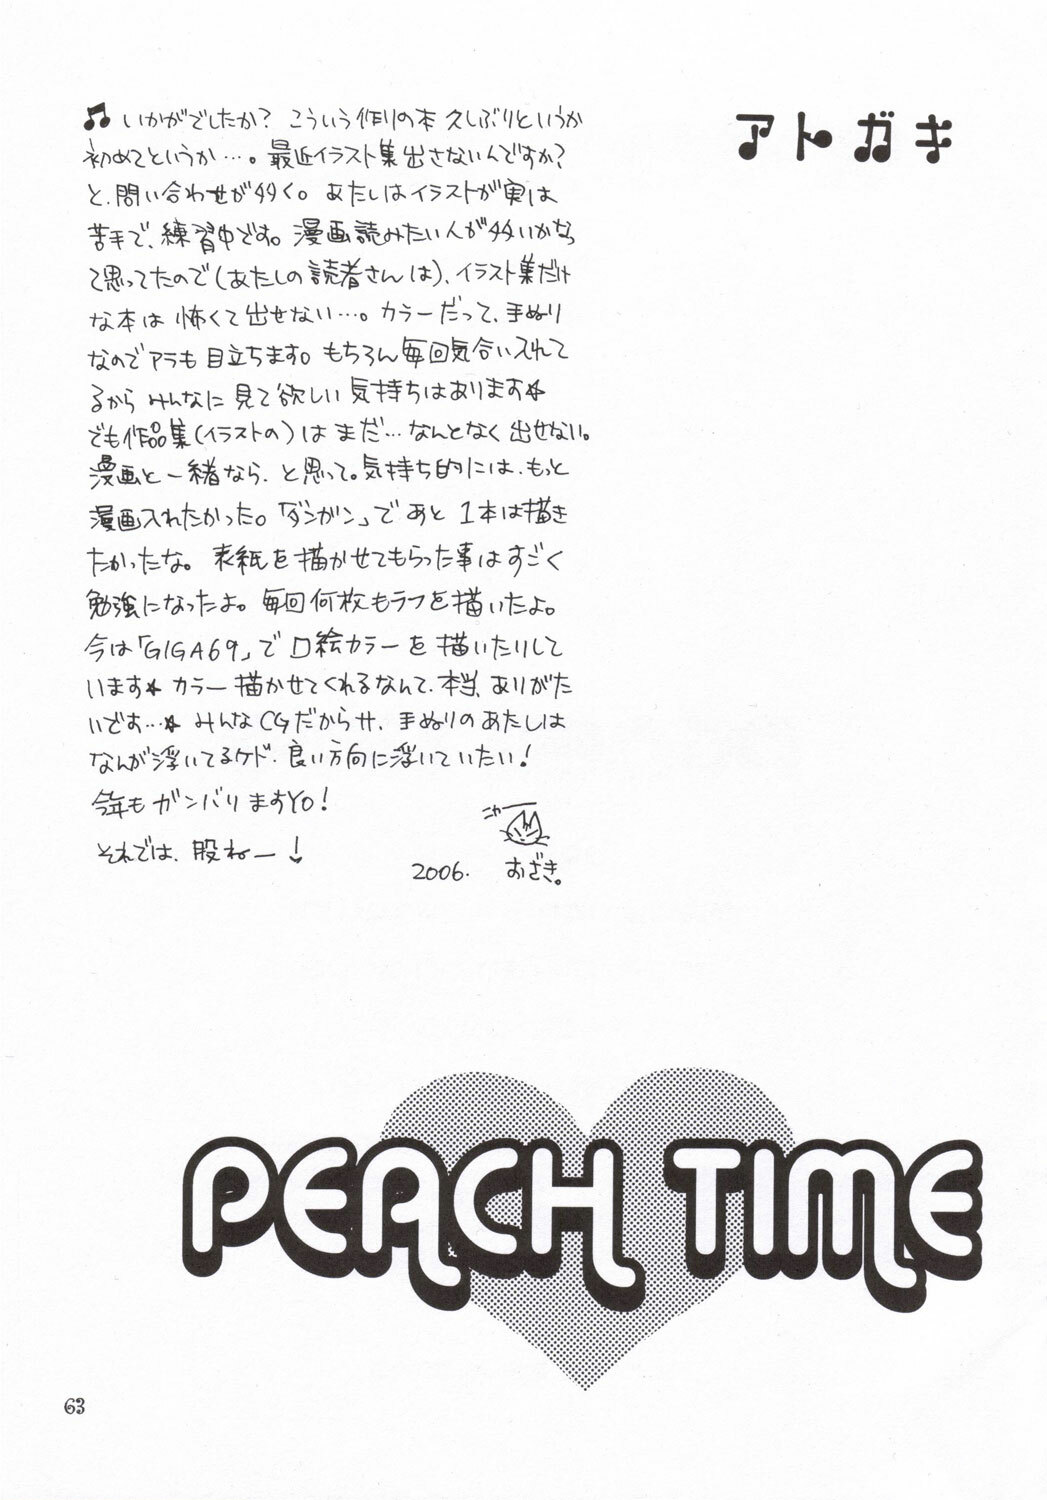 アトガキ
♫ いかがでしたか? こういう作りの本 久しぶりというか
初めてというか…。最近イラスト集出さないんですか?
と、問い合わせが多く。あたしはイラストが実は
苦手で、練習中です。漫画読みたい人が多いかな
て思ってたので(あたしの読者さんは)、イラスト集だけ
な本は 怖くて出せない…。カラーだって、手ぬり
なのでアラも目立ちます。もちろん毎回気合い入れて
るから みんなに 見て欲しい 気持ちはあります★
でも作品集(イラストの)は まだ… なんとなく 出せない。
漫画と一緒なら、と思って。気持ち的には、もっと
漫画入れたかった。「ダンガン」で あと 1本は描き
たかったな。 表紙を描かせてもらった事は すごく
勉強になったよ。毎回何枚もラフを描いたよ。
今は「GIGA69」で 口絵カラーを 描いたりして
います★ カラー描かせてくれるなんて、本当、ありがた
いです…★ みんなCGだからサ、手ぬりのあたしは
なんか浮いてるケド、良い方向に浮いていたい!
今年もガンバりますYO!
それでは、股ねー!
ニャー
2006. おざき。
PEACH TIME
63